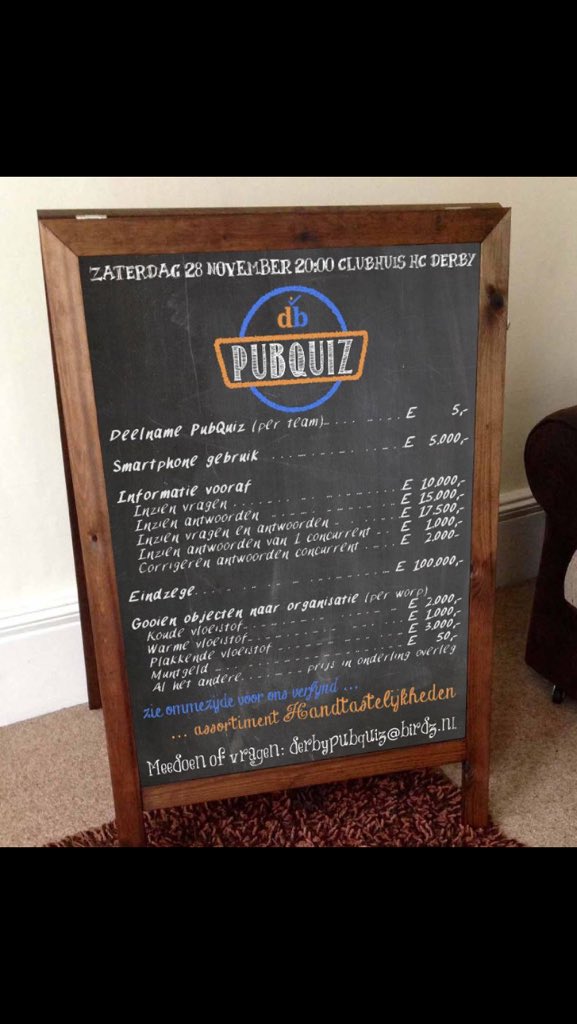 ZATERDAG 28 NOVEMBER 20:00 CLUBHUIS HC DERBY
db
PUBQUIZ
Deelname PubQuiz (per team) E 5,-
Smartphone gebruik E 5.000,-
Informatie vooraf
Inzien vragen E 10.000,-
Inzien antwoorden E 15.000,-
Inzien vragen en antwoorden E 17.500,-
Inzien antwoorden van 1 concurrent E 1.000,-
Corrigeren antwoorden concurrent E 2.000-
Eindzege E 100.000,-
Gooien objecten naar organisatie (per worp)
Koude vloeistof E 2.000,-
Warme vloeistof E 1.000,-
Plakkende vloeistof E 3.000,-
Muntgeld E 50,-
Al het andere prijs in onderling overleg
zie ommezijde voor ons verfijnd ...
... assortiment Handtastelijkheden
Meedoen of vragen: derbypubquiz@birdz.nl